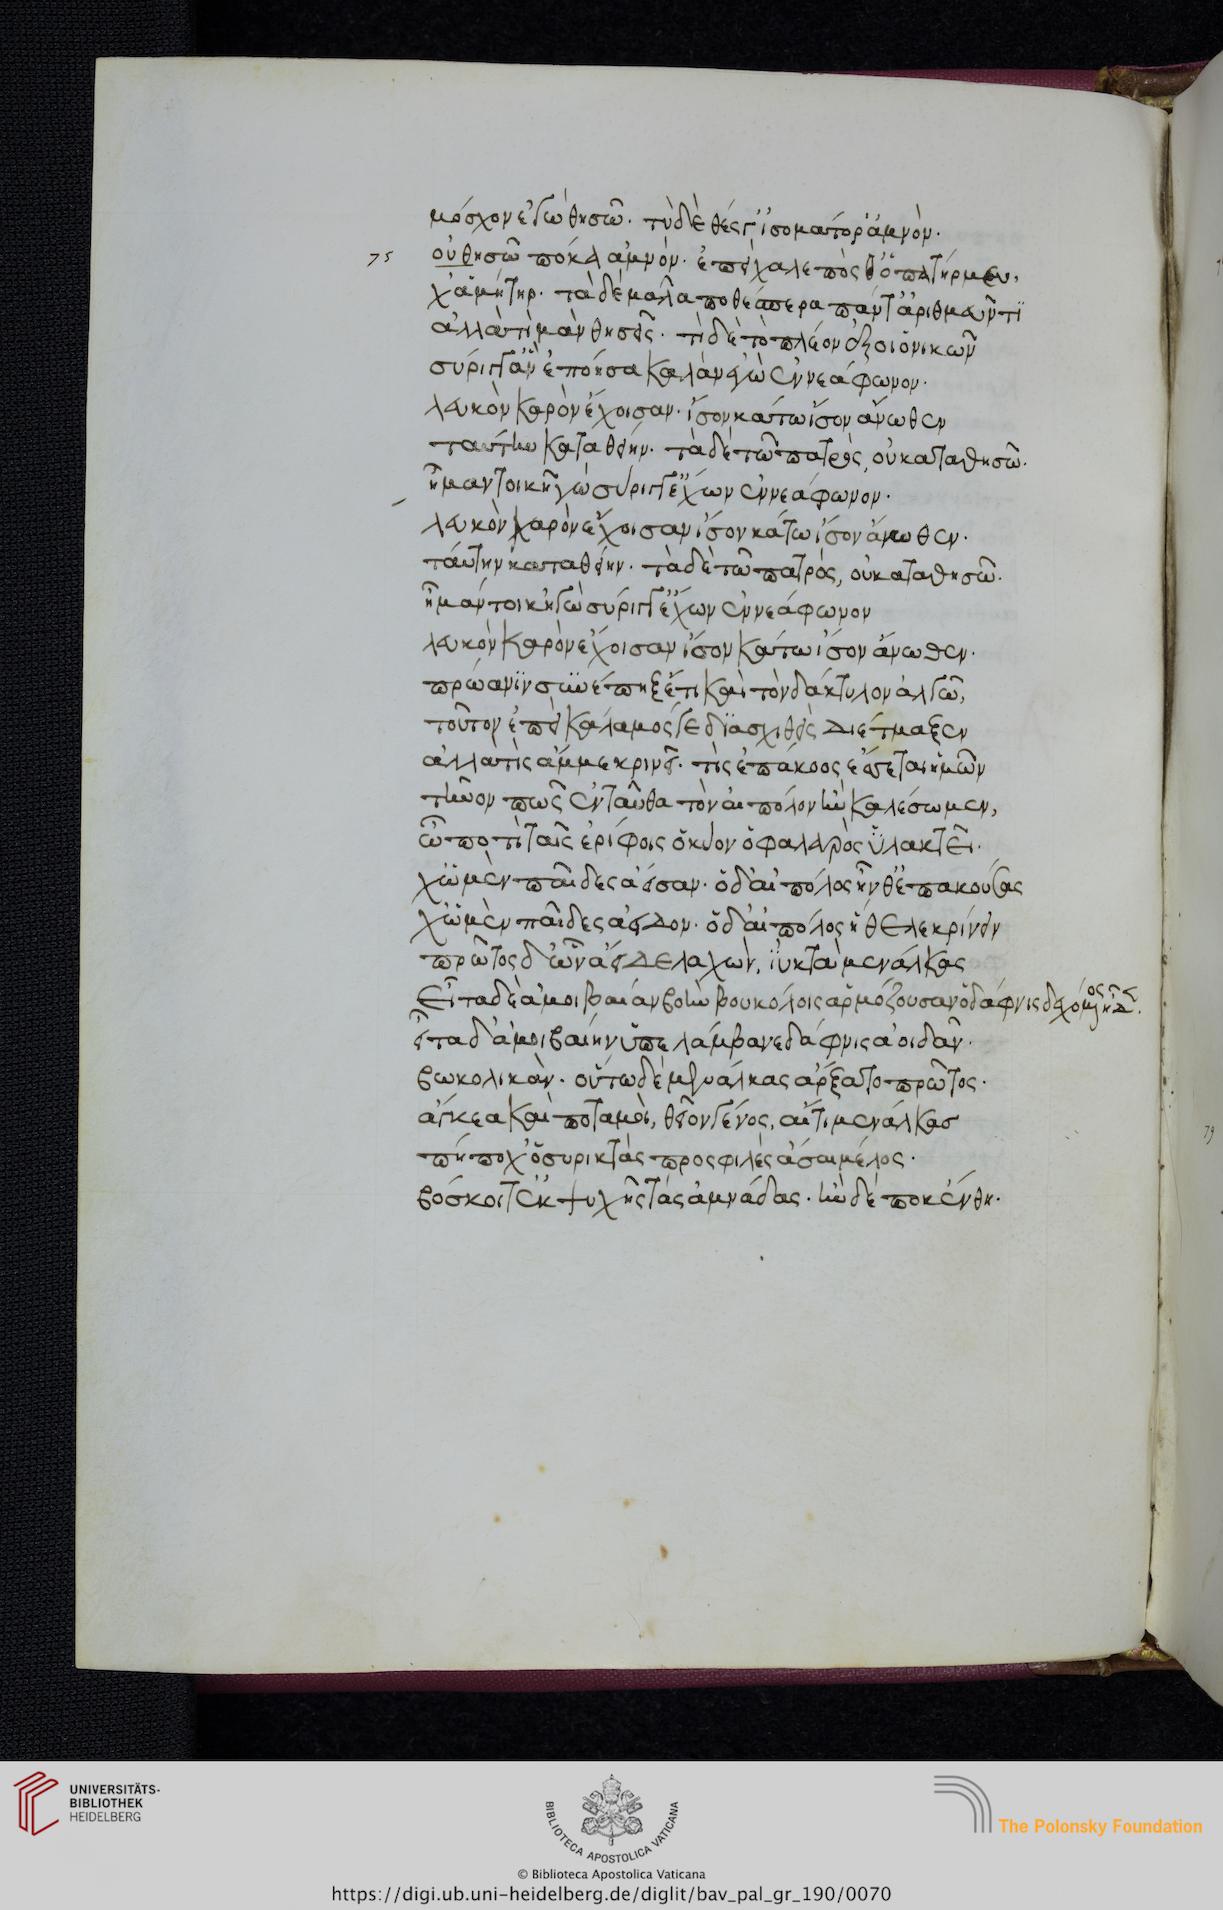 μόσχον ἐγὼ θησῶ. τὺ δὲ θές γ' ἰσομάτορ' ἀμνόν.
75
οὐ θησῶ ποκὰ ἀμνόν. ἐπεὶ χαλεπὸς θ' ὁ πατήρ μευ,
χἁ μήτηρ. τὰ δὲ μᾶλα ποθέσπερα πάντ' ἀριθμεῦντι
ἀλλὰ τί μὰν θησεῖς. τί δὲ τὸ πλέον ἑξεῖ ὁ νικῶν
σύριγγ' ἃν ἐπόησα καλὰν ἐγὼ ἐννεάφωνον.
λευκὸν καρὸν ἔχοισαν. ἴσον κάτω ἴσον ἄνωθεν
ταύταν καταθείην. τὰ δὲ τῶ πατρὸς, οὐ καταθησῶ.
ἦ μάν τοι κἠγὼ σύριγγ' ἔχων ἐννεάφωνον.
λευκὸν καρὸν ἔχοισαν ἴσον κάτω ἴσον ἄνωθεν.
ταύτην καταθείην. τὰ δὲ τῶ πατρός, οὐ καταθησῶ.
ἦ μάν τοι κἠγὼ σύριγγ' ἔχων ἐννεάφωνον
λευκὸν καρὸν ἔχοισαν ἴσον κάτω ἴσον ἄνωθεν.
πρώαν ἵν συνέπηξ' ἔτι καὶ τὸν δάκτυλον ἀλγῶ,
τοῦτον ἐπεὶ κάλαμός γε διασχισθεὶς διέτμαξεν
ἀλλὰ τίς ἄμμε κρινεῖ. τίς ἐπάκοος ἔσεται ἡμῶν
τῆνον πῶς ἐνταῦθα τὸν αἰπόλον ἢν καλέσωμεν,
ὧ ποτὶ ταῖς ἐρίφοις ὁ κύον ὁ φαλαρὸς ὑλακτεῖ.
χὠ μὲν παῖδες ἄυσαν. ὁ δ' αἰπόλος ἦνθ' ἐπακούσας
χὠ μὲν παῖδες ἄειδον. ὁ δ' αἰπόλος ἤθελε κρίνειν
πρᾶτος δ' ὦν ἄειδε λαχὼν, ἰυκτὰ μενάλκας
Εἶτα δὲ ἀμοιβαίαν βοὴν βουκόλοις ἁρμόζουσαν ὁ δάφνις
εἶτα δ' ἀμοιβαίην ὑπελάμβανε δάφνις ἀοιδὰν.
βωκολικὰν. οὕτω δὲ μενάλκας ἄρξατο πρᾶτος.
ἄγκεα καὶ ποταμοὶ, θεῖον γένος, αἴ τι μενάλκας
πήποχ' ὁ συρικτὰς προσφιλὲς ᾆσαι μέλος.
βόσκοιτ' ἐκ ψυχῆς τὰς ἀμνάδας. ἢν δέ ποκ' ἔνθη.
79
UNIVERSITÄTS-
BIBLIOTHEK
HEIDELBERG
BIBLIOTECA APOSTOLICA VATICANA
The Polonsky Foundation
© Biblioteca Apostolica Vaticana
https://digi.ub.uni-heidelberg.de/diglit/bav_pal_gr_190/0070